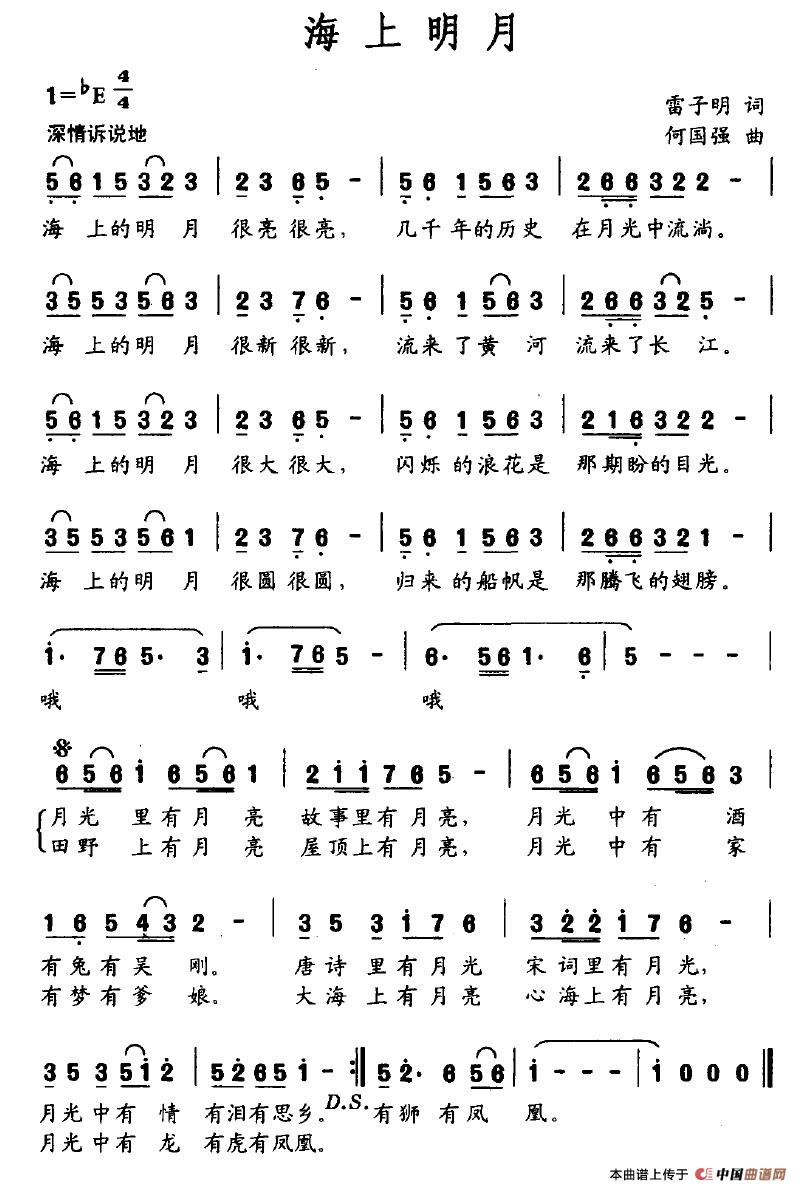 海上明月
1=♭E 4/4
雷子明 词
深情诉说地
何国强 曲
5 6 1 5 3 2 3 | 2 3 6 5 - | 5 6 1 5 6 3 | 2 6 6 3 2 2 - |
海 上的明 月 很亮很亮， 几千年的历史 在月光中流淌。
3 5 5 3 5 6 3 | 2 3 7 6 - | 5 6 1 5 6 3 | 2 6 6 3 2 5 - |
海 上的明 月 很新很新， 流来了黄 河 流来了长 江。
5 6 1 5 3 2 3 | 2 3 6 5 - | 5 6 1 5 6 3 | 2 1 6 3 2 2 - |
海 上的明 月 很大很大， 闪烁的浪花是 那期盼的目光。
3 5 5 3 5 6 1 | 2 3 7 6 - | 5 6 1 5 6 3 | 2 6 6 3 2 1 - |
海 上的明 月 很圆很圆， 归来的船帆是 那腾飞的翅膀。
1· 7 6 5· 3 | 1· 7 6 5 - | 6· 5 6 1· 6 | 5 - - - |
哦 哦 哦
6 5 6 1 6 5 6 1 | 2 1 1 7 6 5 - | 6 5 6 1 6 5 6 3 |
月光 里有月 亮 故事里有月亮， 月光 中有 酒
田野 上有月 亮 屋顶上有月亮， 月光 中有 家
1 6 5 4 3 2 - | 3 5 3 1 7 6 | 3 2 2 1 7 6 - |
有兔有吴 刚。 唐诗 里有月光 宋词里有月光，
有梦有爹 娘。 大海 上有月亮 心海上有月亮，
3 5 3 5 1 2 | 5 2 6 5 1 - :| 5 2· 6 5 6 | 1 - - - | 1 0 0 0 ‖
月光中有 情 有泪有思乡。 D.S. 有狮 有凤 凰。
月光中有 龙 有虎有凤凰。
本曲谱上传于 中国曲谱网